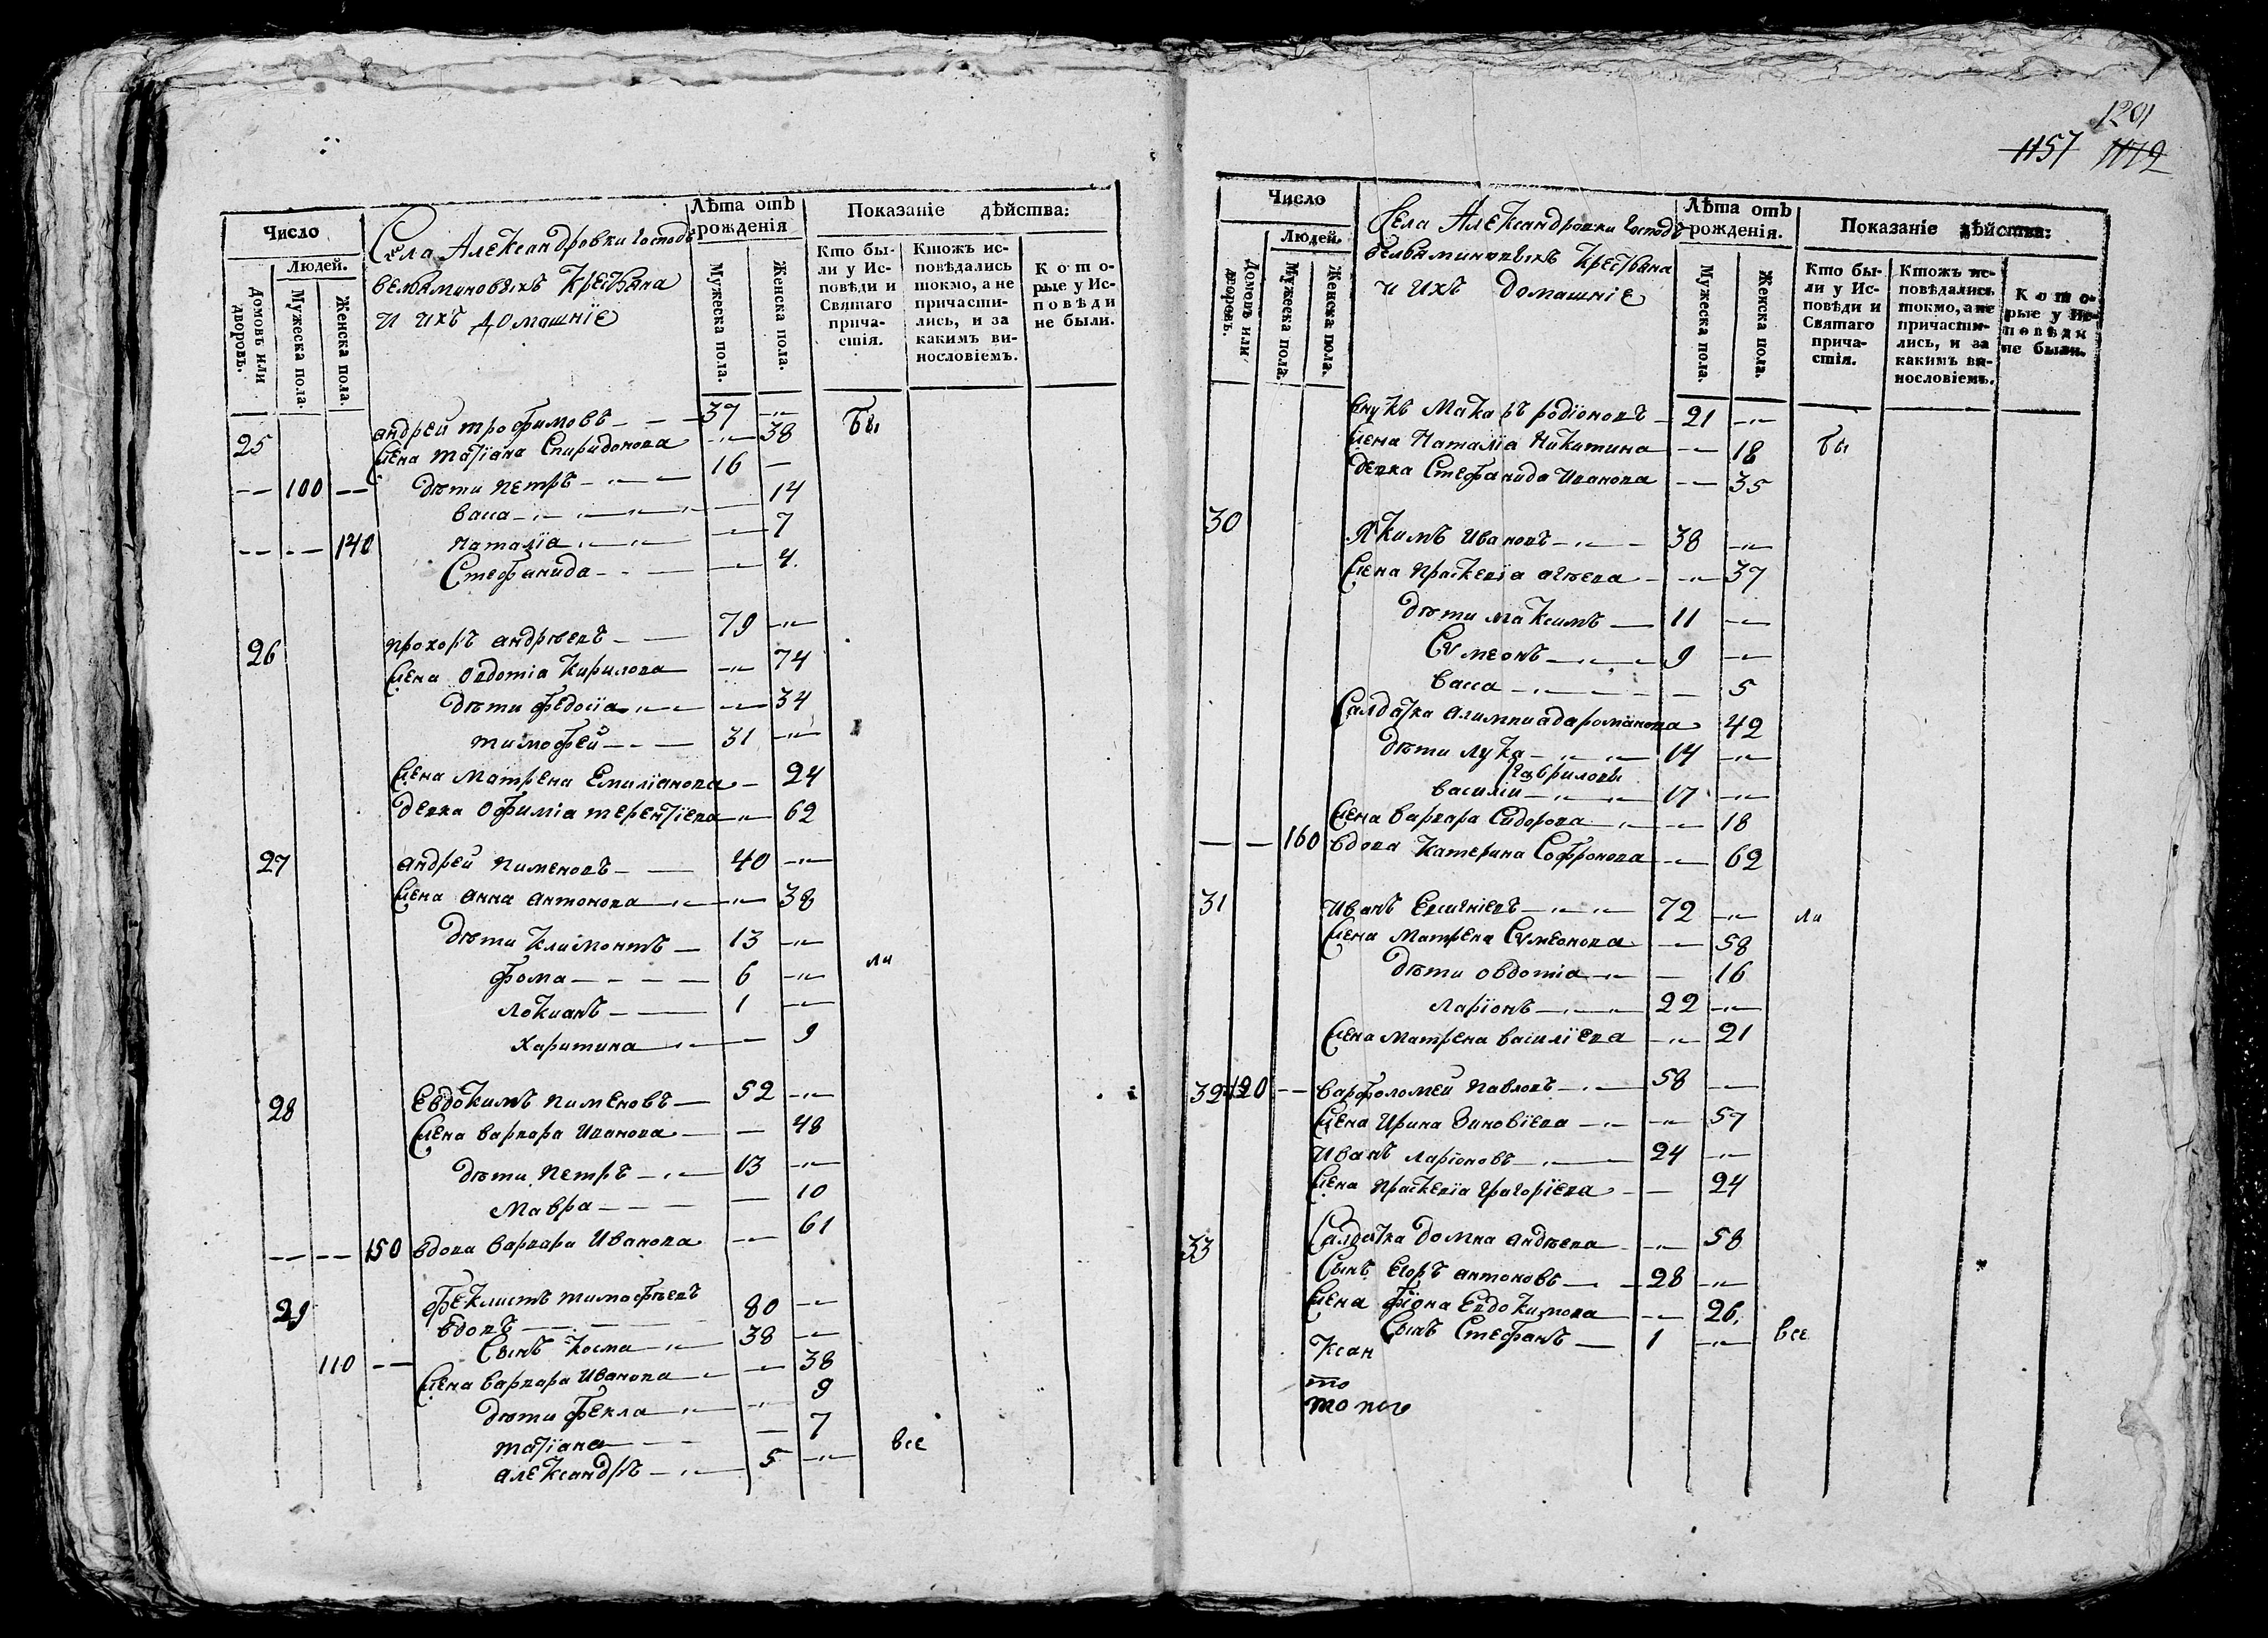 1201
1157 1172
Число
Людей.
Домовъ или дворовъ.
Мужеска пола.
Женска пола.
Села Александровки господъ
вельяминовыхъ крестьяна
и ихъ домашніе
Лѣта отъ рожденія
Мужеска пола.
Женска пола.
Показаніе дѣйства:
Кто были у Исповѣди и Святаго причастія.
Ктожъ исповѣдались токмо, а не причастились, и за какимъ винословіемъ.
Которые у Исповѣди не были.
25 андрей трофимовъ 37 бы
жена татіана Спиридонова 38
100 дѣти петръ 16
васса 14
140 наталіа 7
Стефанида 4
26 прохоръ андрѣевъ 79
жена овдотіа Кирилова 74
дѣти федосіа 34
тимофей 31
жена матрена Емиліанова 24
девка офиміа терентіева 62
27 андрей пименовъ 40
жена анна антонова 38
дѣти климонтъ 13
ли
фома 6
локианъ 1
харитина 9
28 Евдокимъ пименовъ 52
жена варвара Иванова 48
дѣти петръ 13
мавра 10
150 вдова варвара Иванова 61
29 феклистъ тимофѣевъ
вдовъ 80
Сынъ косма 38
110 жена варвара Иванова 38
дѣти фекла 9
татіана 7
александръ 5 все
Число
Людей.
Домовъ или дворовъ.
Мужеска пола.
Женска пола.
Села Александровки господъ
вельяминовыхъ крестьяна
и ихъ домашніе
Лѣта отъ рожденія.
Мужеска пола.
Женска пола.
Показаніе дѣйства:
Кто были у Исповѣди и Святаго причастія.
Ктожъ исповѣдались токмо, а не причастились, и за какимъ винословіемъ.
Которые у Исповѣди не были.
внукъ Макаръ родіоновъ 21
жена Наталіа Никитина 18 бы
девка Стефанида Иванова 35
30 Якимъ Ивановъ 38
жена праскевіа агѣева 37
дѣти максимъ 11
Сѵмеонъ 9
васса 5
Салдатка алимпиада романова 42
дѣти лука 14
гавриловы
василии 17
жена варвара Сидорова 18
160 вдова Катерина Софронова 62
31 Иванъ Евсигніевъ 72 ли
жена матрена Сѵмеонова 58
дѣти овдотіа 16
ларіонъ 22
жена матрена василіева 21
32 120 варфоломей павловъ 58
жена Ирина Зиновіева 57
Иванъ ларіоновъ 24
жена праскевіа григоріева 24
33 Салдатка домна андрѣева 58
Сынъ егоръ антоновъ 28
жена фіона Евдокимова 26
Сынъ Стефанъ 1 все
Ксан
то